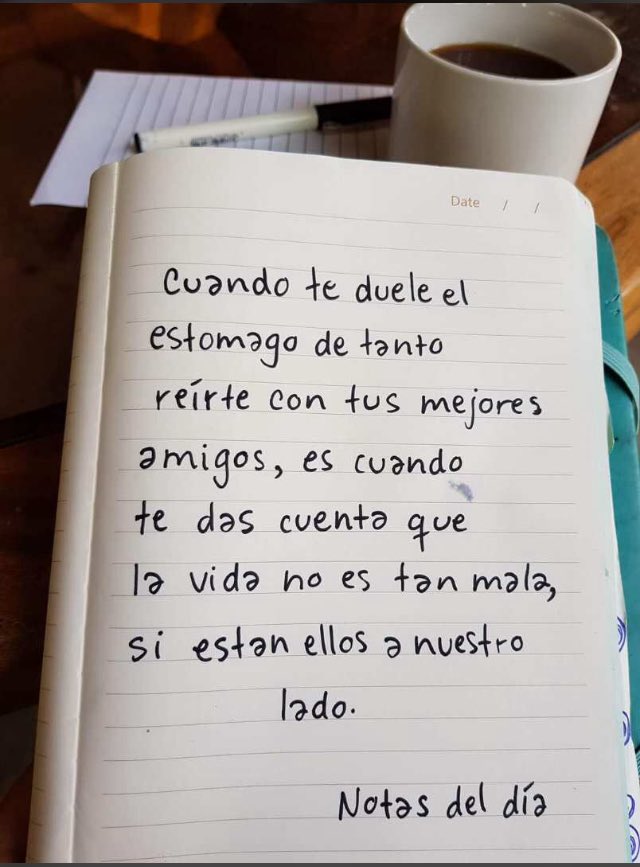 Date / /
Cuando te duele el
estomago de tanto
reírte con tus mejores
amigos, es cuando
te das cuenta que
la vida no es tan mala,
si estan ellos a nuestro
lado.
Notas del día